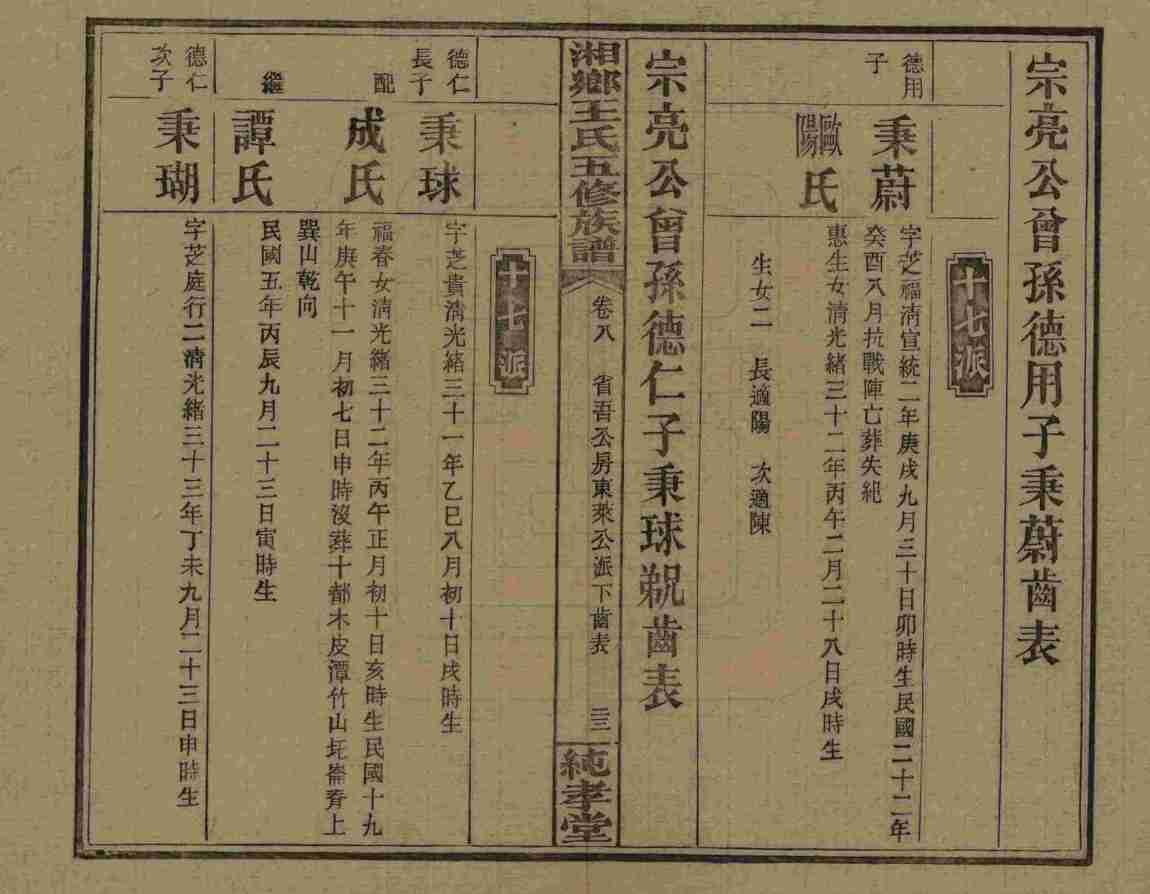 宗亮公曾孫德用子秉蔚齒表
十七派
德用
子
秉蔚
字芝福清宣統二年庚戌九月三十日卯時生民國二十二年
癸酉八月抗戰陣亡葬失紀
歐陽氏
惠生女清光緒三十二年丙午二月二十八日戌時生
生女二　長適陽　次適陳
宗亮公曾孫德仁子秉球瑚齒表
湘鄉王氏五修族譜
卷八　省吾公房東萊公派下齒表　三三
純孝堂
十七派
德仁
長子
秉球
字芝貴清光緒三十一年乙巳八月初十日戌時生
配
成氏
福春女清光緒三十二年丙午正月初十日亥時生民國十九
年庚午十一月初七日申時沒葬十都木皮潭竹山坵崙脊上
巽山乾向
繼
譚氏
民國五年丙辰九月二十三日寅時生
德仁
次子
秉瑚
字芝庭行二清光緒三十三年丁未九月二十三日申時生